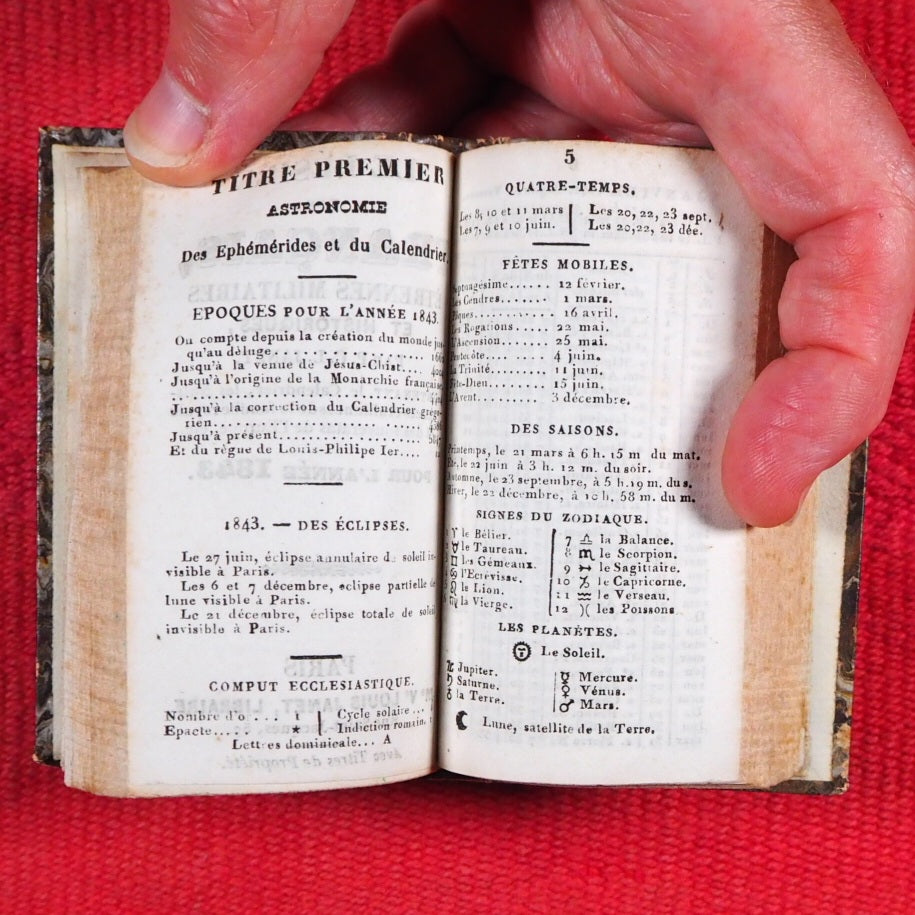 TITRE PREMIER
ASTRONOMIE
Des Ephémérides et du Calendrier
EPOQUES POUR L'ANNÉE 1843.
On compte depuis la création du monde jus
qu'au dèluge
Jusqu'à la venue de Jésus-Chist....
Jusqu'à l'origine de la Monarchie française
Jusqu'à la correction du Calendrier grégo-
rien
Jusqu'à présent
Et du règne de Louis-Philipe Ier....
1843. — DES ÉCLIPSES.
Le 27 juin, éclipse annulaire de soleil in-
visible à Paris.
Les 6 et 7 décembre, éclipse partielle de
lune visible à Paris.
Le 21 décembre, éclipse totale de soleil
invisible à Paris.
COMPUT ECCLESIASTIQUE.
Nombre d'o . . . 1 | Cycle solaire . . .
Epacte.... ★ | Indiction romain.
Lettres dominicale... A
5
QUATRE-TEMPS.
Les 8, 10 et 11 mars | Les 20, 22, 23 sept.
Les 7, 9 et 10 juin. | Les 20, 22, 23 dée.
FÊTES MOBILES.
Septuagésime...... 12 février.
Les Cendres....... 1 mars.
Pâques........... 16 avril.
Les Rogations...... 22 mai.
L'Ascension....... 25 mai.
Pentecôte......... 4 juin.
La Trinité......... 11 juin.
Fête-Dieu......... 15 juin.
L'Avent.......... 3 décembre.
DES SAISONS.
Printemps, le 21 mars à 6 h. 15 m du mat.
Eté, le 22 juin à 3 h. 12 m. du soir.
Automne, le 23 septembre, à 5 h. 19 m. du s.
Hiver, le 22 décembre, à 10 h. 58 m. du m.
SIGNES DU ZODIAQUE.
♈ le Bélier.
♉ le Taureau.
♊ les Gémeaux.
♋ l'Ecrévisse.
♌ le Lion.
♍ la Vierge.
7 ♎ la Balance.
8 ♏ le Scorpion.
9 ♐ le Sagittaire.
10 ♑ le Capricorne.
11 ♒ le Verseau.
12 ♓ les Poissons
LES PLANÈTES.
Le Soleil.
♃ Jupiter.
♄ Saturne.
♁ la Terre.
☿ Mercure.
♀ Vénus.
♂ Mars.
☾ Lune, satellite de la Terre.